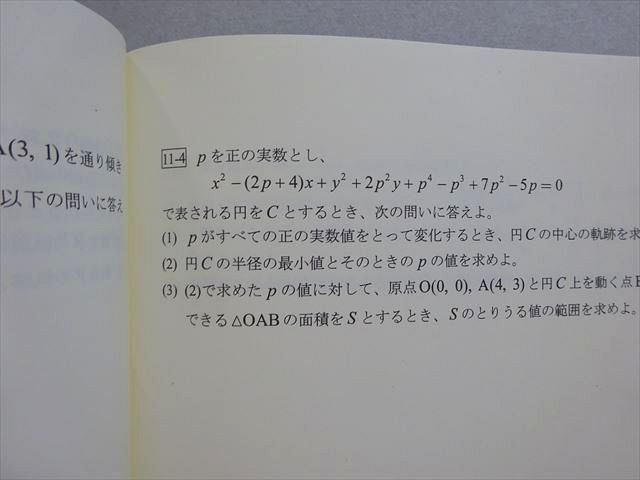 A(3, 1)を通り傾き
以下の問いに答え
11-4 pを正の実数とし、
x²−(2p+4)x+y²+2p²y+p⁴−p³+7p²−5p=0
で表される円をCとするとき、次の問いに答えよ。
(1) pがすべての正の実数値をとって変化するとき、円Cの中心の軌跡を求
(2) 円Cの半径の最小値とそのときのpの値を求めよ。
(3) (2)で求めたpの値に対して、原点O(0, 0), A(4, 3)と円C上を動く点B
できる△OABの面積をSとするとき、Sのとりうる値の範囲を求めよ。